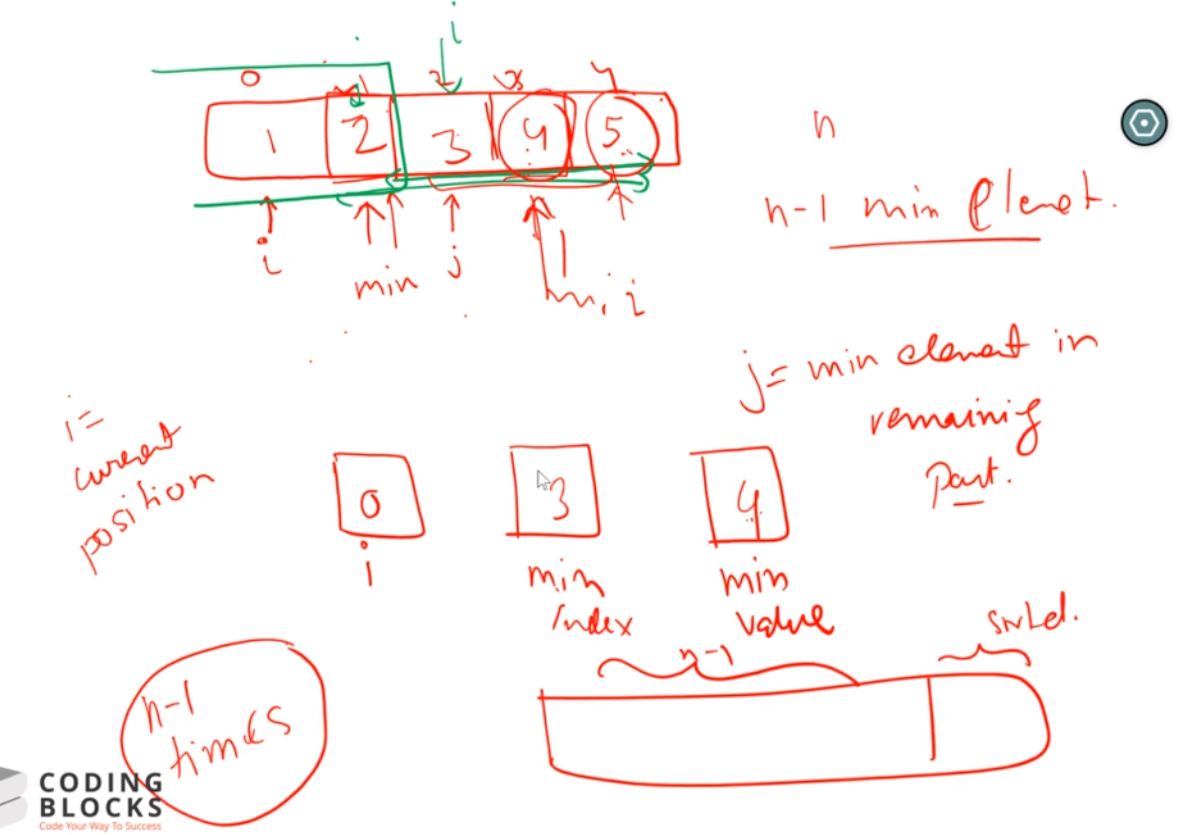 i
0
1 2 3 4 5
i
min
j
n
n-1 min Element.
j= min element in
remaining
part.
i=
current
position
0
3
4
i
min
index
min
value
n-1
times
n-1
sorted.
CODING
BLOCKS
Code Your Way To Success